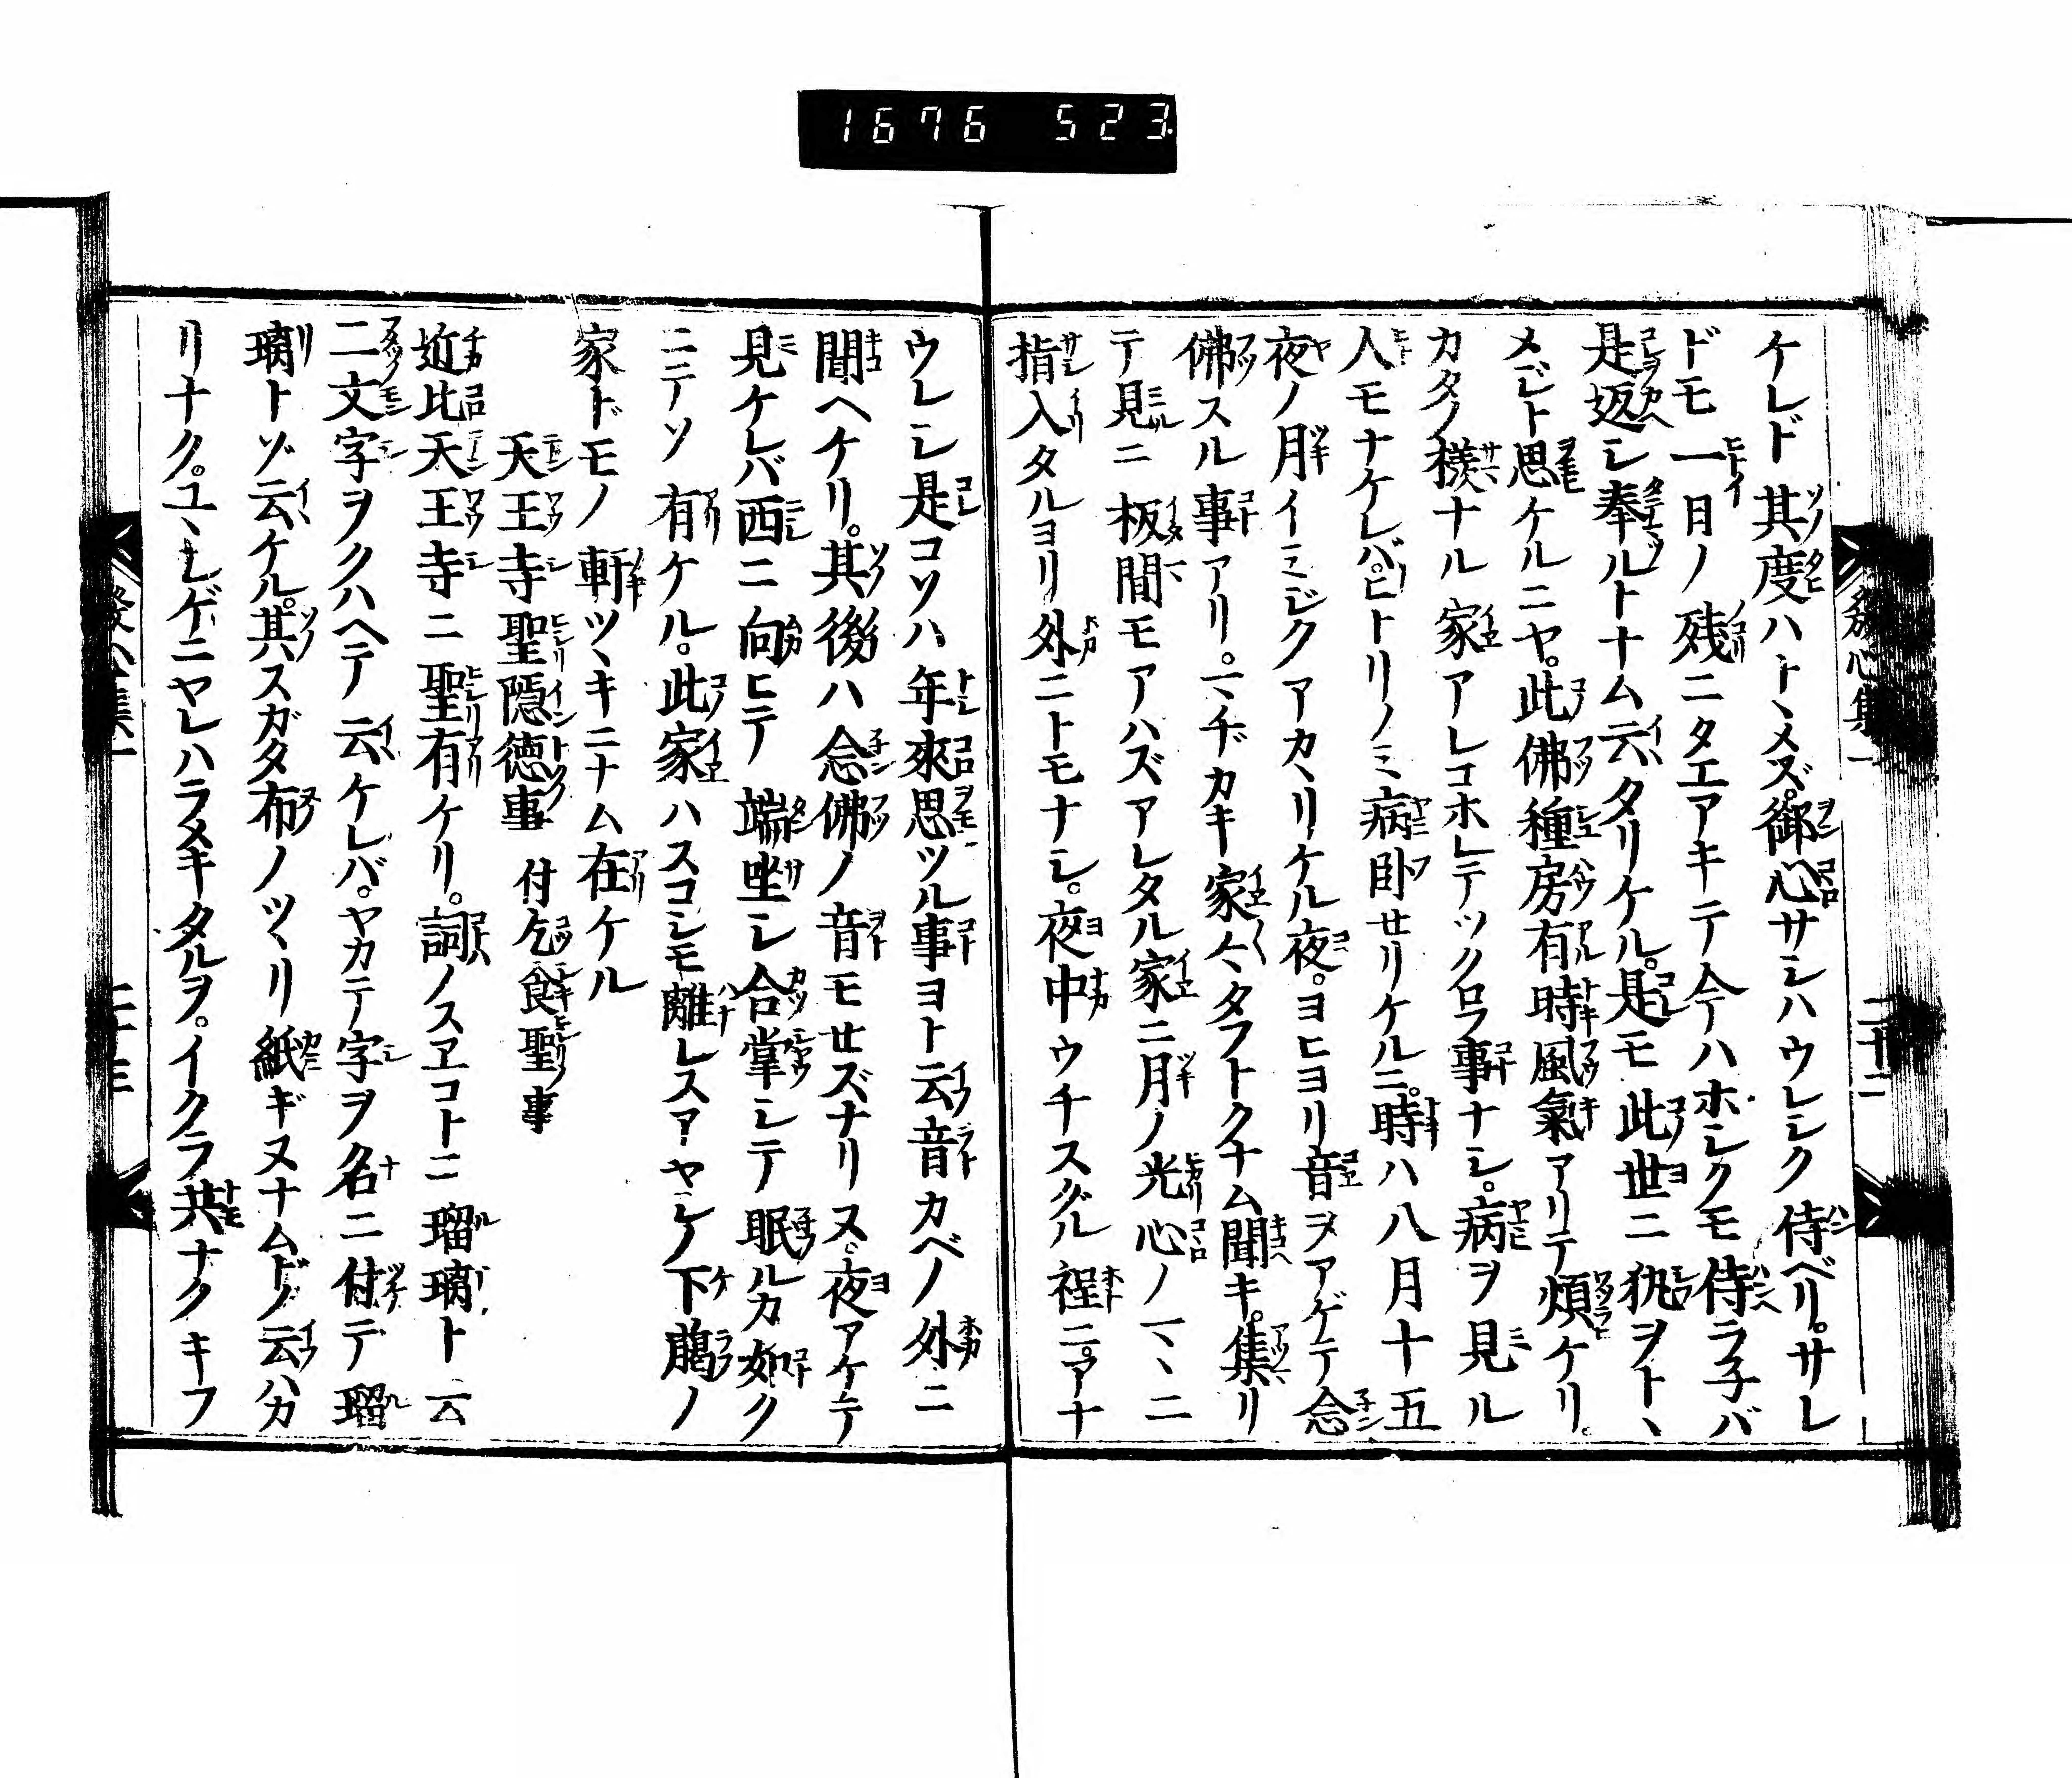 1676 523
ケレド其度ハトヽメズ。御心サシハウレシク侍ベリ。サレ
ドモ一日ノ残ニタエアキテ今ハホシクモ侍ラ子バ
是返シ奉ルトナム云タリケル。是モ此世ニ執ヲトヽ
メジト思ケルニヤ。此佛種房有時風氣アリテ煩ケリ。
カタノ様ナル家アレコホレテツクロフ事ナシ。病ヲ見ル
人モナケレバ。ヒトリノミ病卧セリケルニ。時ハ八月十五
夜ノ月イミジクアカヽリケル夜。ヨヒヨリ音ヲアゲテ念
佛スル事アリ。マヂカキ家〻タフトクナム聞キ。集リ
テ見ニ板間モアハズアレタル家ニ月ノ光心ノマヽニ
指入タルヨリ外ニトモナシ。夜中ウチスグル程ニ。アナ
ウレシ是コソハ年來思ツル事ヨト云音カベノ外ニ
聞ヘケリ。其後ハ念佛ノ音モセズナリヌ。夜アケテ
見ケレバ西ニ向ヒテ端坐シ合掌シテ眠ルカ如ク
ニテソ有ケル。此家ハスコシモ離レスアヤシノ下臈ノ
家ドモノ軒ツヽキニナム在ケル
天王寺聖隠徳事 付乞食聖事
近比天王寺ニ聖有ケリ。詞ノスヱコトニ瑠璃ト云
二文字ヲクハヘテ云ケレバ。ヤカテ字ヲ名ニ付テ瑠
璃トゾ云ケル。其スガタ布ノツヽリ紙ギヌナムドノ云ハカ
リナク。ユヽシゲニヤレハラメキタルヲ。イクラ共ナクキフ
發心集一 二十二
發心集一